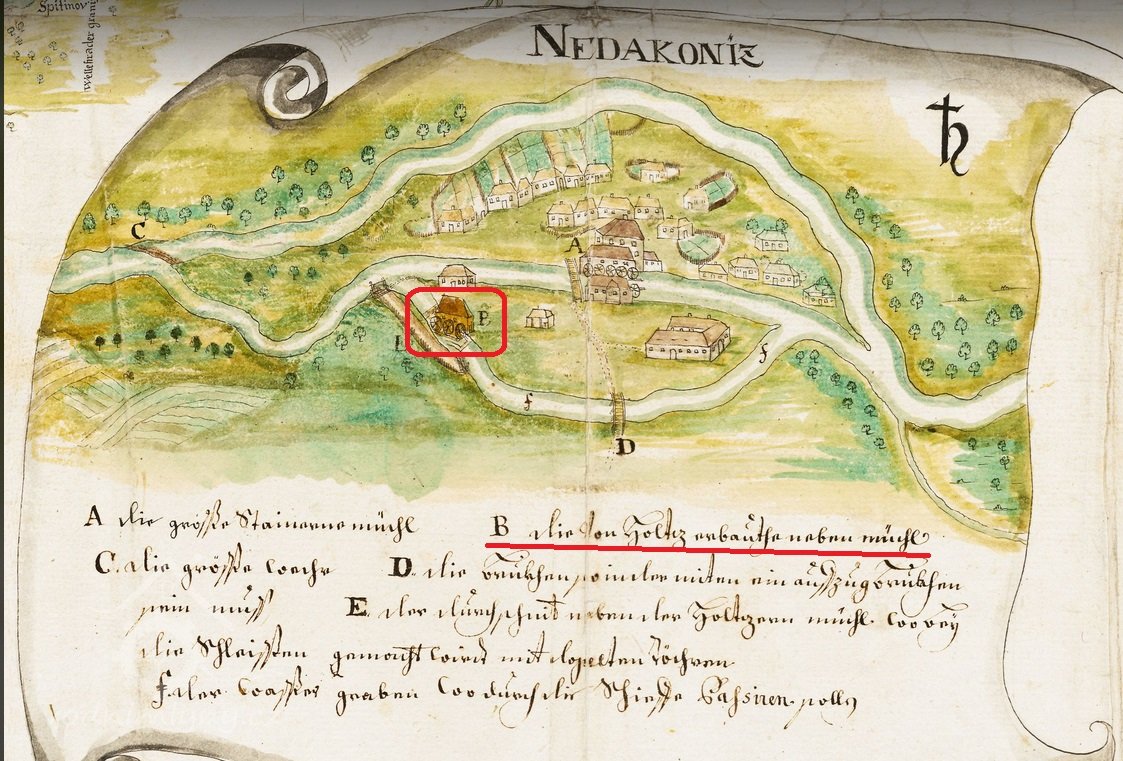 Spitinov
Wellehrader graniz
NEDAKONIZ
C
A
B
E
f
f
D
A die größe Stainerne müchl
B die von Holtz erbauthe neben müchl
C. die größe wöhr
D. die brukhen, so in der miten ein außzug brukhen
sein muß
E. der durchschnit neben der Holtzern müchl wobey
die Schleißen gemacht wird mit dopelten
f. der wasser graben wo durch die Schieffe Passiren solln